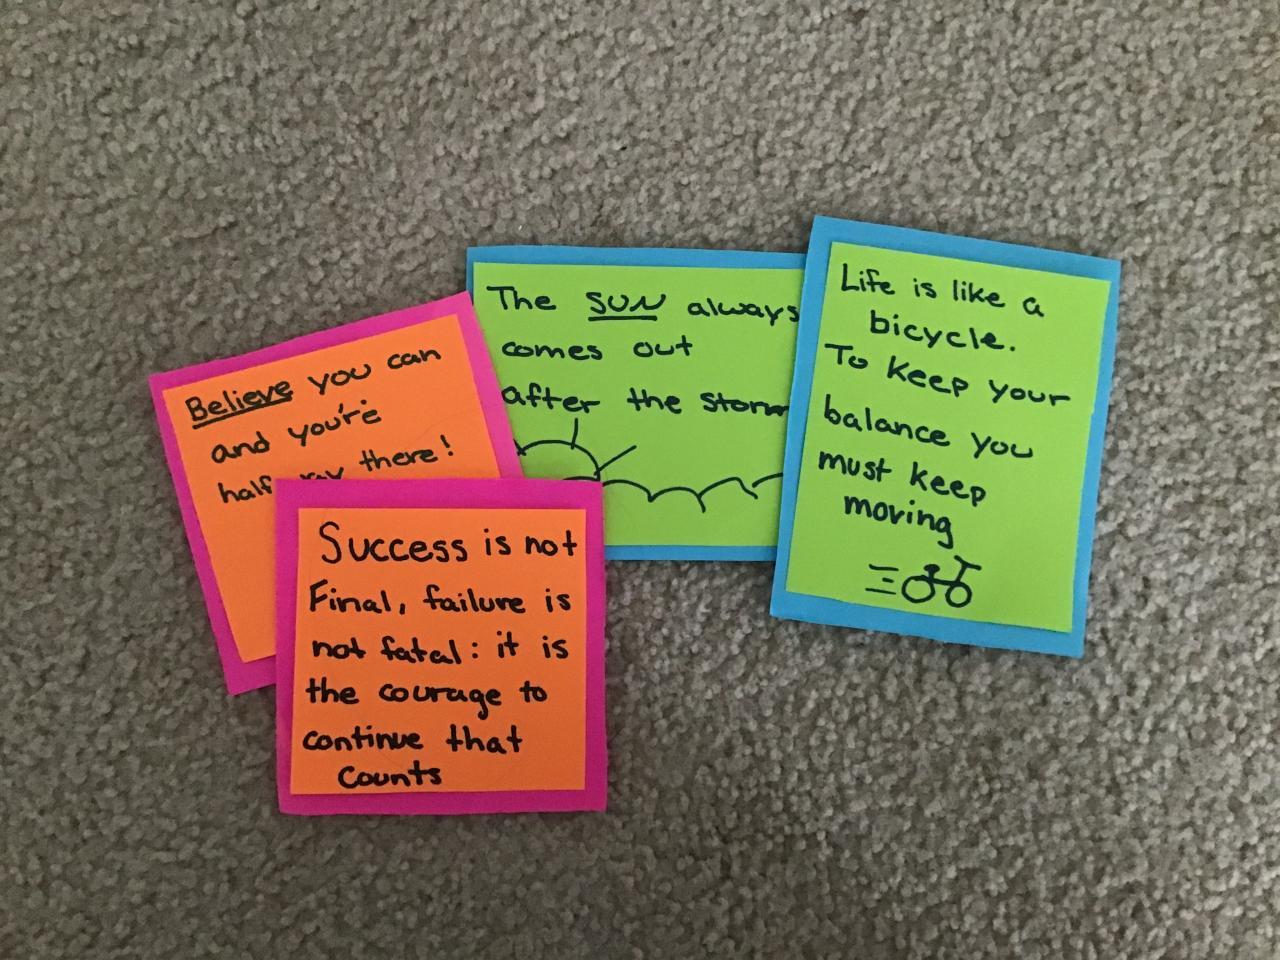 Believe you can
and you're
half there!
The SUN always
comes out
after the storm
Life is like a
bicycle.
To keep your
balance you
must keep
moving
Success is not
Final, failure is
not fatal: it is
the courage to
continue that
counts